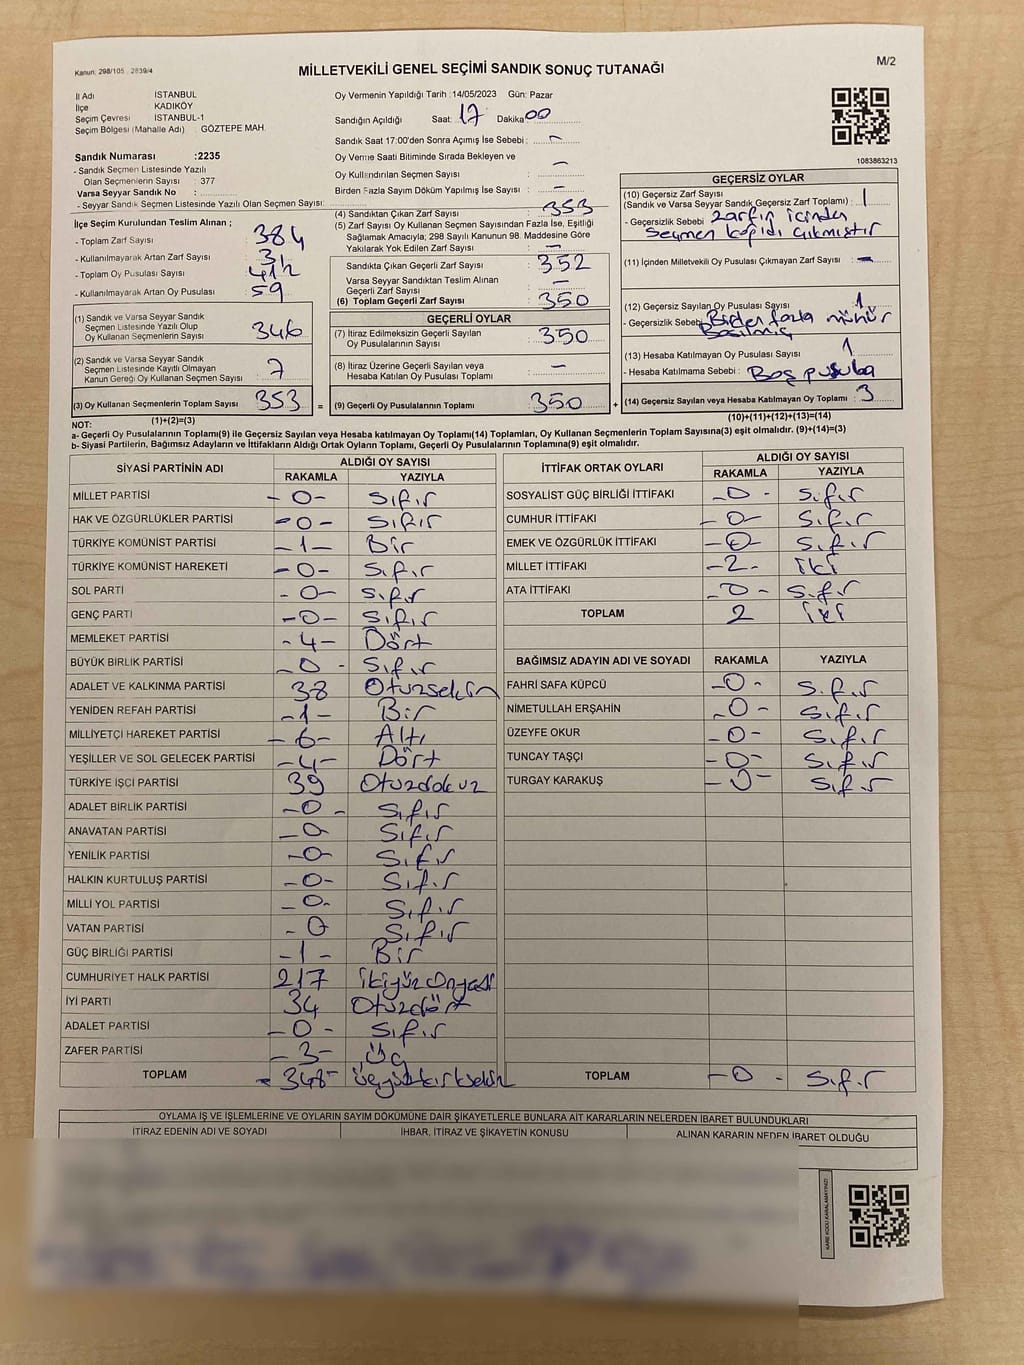 Kanun: 298/105 , 2839/4
M/2
MİLLETVEKİLİ GENEL SEÇİMİ SANDIK SONUÇ TUTANAĞI
İl Adı İSTANBUL
İlçe KADIKÖY
Seçim Çevresi İSTANBUL-1
Seçim Bölgesi (Mahalle Adı) : GÖZTEPE MAH.
Sandık Numarası :2235
- Sandık Seçmen Listesinde Yazılı
Olan Seçmenlerin Sayısı : 377
Varsa Seyyar Sandık No :
- Seyyar Sandık Seçmen Listesinde Yazılı Olan Seçmen Sayısı:
Oy Vermenin Yapıldığı Tarih :14/05/2023 Gün: Pazar
Sandığın Açıldığı Saat: 17 Dakika: 00
Sandık Saat 17:00'den Sonra Açılmış İse Sebebi : -
Oy Verme Saati Bitiminde Sırada Bekleyen ve
Oy Kullandırılan Seçmen Sayısı : -
Birden Fazla Sayım Döküm Yapılmış İse Sayısı : -
1083863213
İlçe Seçim Kurulundan Teslim Alınan ;
- Toplam Zarf Sayısı : 384
- Kullanılmayarak Artan Zarf Sayısı : 31
- Toplam Oy Pusulası Sayısı : 412
- Kullanılmayarak Artan Oy Pusulası : 59
(1) Sandık ve Varsa Seyyar Sandık
Seçmen Listesinde Yazılı Olup
Oy Kullanan Seçmenlerin Sayısı : 346
(2) Sandık ve Varsa Seyyar Sandık
Seçmen Listesinde Kayıtlı Olmayan
Kanun Gereği Oy Kullanan Seçmen Sayısı : 7
(3) Oy Kullanan Seçmenlerin Toplam Sayısı : 353 =
(1)+(2)=(3)
(4) Sandıktan Çıkan Zarf Sayısı : 353
(5) Zarf Sayısı Oy Kullanan Seçmen Sayısından Fazla İse, Eşitliği
Sağlamak Amacıyla, 298 Sayılı Kanunun 98. Maddesine Göre
Yakılarak Yok Edilen Zarf Sayısı : -
Sandıkta Çıkan Geçerli Zarf Sayısı : 352
Varsa Seyyar Sandıktan Teslim Alınan
Geçerli Zarf Sayısı : -
(6) Toplam Geçerli Zarf Sayısı : 350
GEÇERLİ OYLAR
(7) İtiraz Edilmeksizin Geçerli Sayılan
Oy Pusulalarının Sayısı : 350
(8) İtiraz Üzerine Geçerli Sayılan veya
Hesaba Katılan Oy Pusulası Toplamı : -
(9) Geçerli Oy Pusulalarının Toplamı : 350 +
GEÇERSİZ OYLAR
(10) Geçersiz Zarf Sayısı
(Sandık ve Varsa Seyyar Sandık Geçersiz Zarf Toplamı) : 1
- Geçersizlik Sebebi : zarfın içinden
seçmen kağıdı çıkmıştır
(11) İçinden Milletvekili Oy Pusulası Çıkmayan Zarf Sayısı : -
(12) Geçersiz Sayılan Oy Pusulası Sayısı : 1
- Geçersizlik Sebebi : Birden fazla mühür
Basılmış
(13) Hesaba Katılmayan Oy Pusulası Sayısı : 1
- Hesaba Katılmama Sebebi : Boş pusula
(14) Geçersiz Sayılan veya Hesaba Katılmayan Oy Toplamı : 3
(10)+(11)+(12)+(13)=(14)
NOT:
a- Geçerli Oy Pusulalarının Toplamı(9) ile Geçersiz Sayılan veya Hesaba katılmayan Oy Toplamı(14) Toplamları, Oy Kullanan Seçmenlerin Toplam Sayısına(3) eşit olmalıdır. (9)+(14)=(3)
b- Siyasi Partilerin, Bağımsız Adayların ve İttifakların Aldığı Ortak Oyların Toplamı, Geçerli Oy Pusulalarının Toplamına(9) eşit olmalıdır.
SİYASİ PARTİNİN ADI ALDIĞI OY SAYISI
RAKAMLA YAZIYLA
MİLLET PARTİSİ -0- Sıfır
HAK VE ÖZGÜRLÜKLER PARTİSİ -0- Sıfır
TÜRKİYE KOMÜNİST PARTİSİ -1- Bir
TÜRKİYE KOMÜNİST HAREKETİ -0- Sıfır
SOL PARTİ -0- Sıfır
GENÇ PARTİ -0- Sıfır
MEMLEKET PARTİSİ -4- Dört
BÜYÜK BİRLİK PARTİSİ -0- Sıfır
ADALET VE KALKINMA PARTİSİ 38 Otuzsekiz
YENİDEN REFAH PARTİSİ -1- Bir
MİLLİYETÇİ HAREKET PARTİSİ -6- Altı
YEŞİLLER VE SOL GELECEK PARTİSİ -4- Dört
TÜRKİYE İŞÇİ PARTİSİ 39 Otuzdokuz
ADALET BİRLİK PARTİSİ -0- Sıfır
ANAVATAN PARTİSİ -0- Sıfır
YENİLİK PARTİSİ -0- Sıfır
HALKIN KURTULUŞ PARTİSİ -0- Sıfır
MİLLİ YOL PARTİSİ -0- Sıfır
VATAN PARTİSİ -0 Sıfır
GÜÇ BİRLİĞİ PARTİSİ -1- Bir
CUMHURİYET HALK PARTİSİ 217 ikiyüz Onyedi
İYİ PARTİ 34 Otuzdört
ADALET PARTİSİ -0- Sıfır
ZAFER PARTİSİ -3- Üç
TOPLAM -348- üçyüzkırksekiz
İTTİFAK ORTAK OYLARI ALDIĞI OY SAYISI
RAKAMLA YAZIYLA
SOSYALİST GÜÇ BİRLİĞİ İTTİFAKI -0- Sıfır
CUMHUR İTTİFAKI -0- Sıfır
EMEK VE ÖZGÜRLÜK İTTİFAKI -0- Sıfır
MİLLET İTTİFAKI -2- iki
ATA İTTİFAKI -0- Sıfır
TOPLAM 2 iki
BAĞIMSIZ ADAYIN ADI VE SOYADI RAKAMLA YAZIYLA
FAHRİ SAFA KÜPCÜ -0- Sıfır
NİMETULLAH ERŞAHİN -0- Sıfır
ÜZEYFE OKUR -0- Sıfır
TUNCAY TAŞÇI -0- Sıfır
TURGAY KARAKUŞ -0- Sıfır
TOPLAM -0- Sıfır
OYLAMA İŞ VE İŞLEMLERİNE VE OYLARIN SAYIM DÖKÜMÜNE DAİR ŞİKAYETLERLE BUNLARA AİT KARARLARIN NELERDEN İBARET BULUNDUKLARI
İTİRAZ EDENİN ADI VE SOYADI İHBAR, İTİRAZ VE ŞİKAYETİN KONUSU ALINAN KARARIN NEDEN İBARET OLDUĞU
KARE KODU KARALAMAYINIZ!